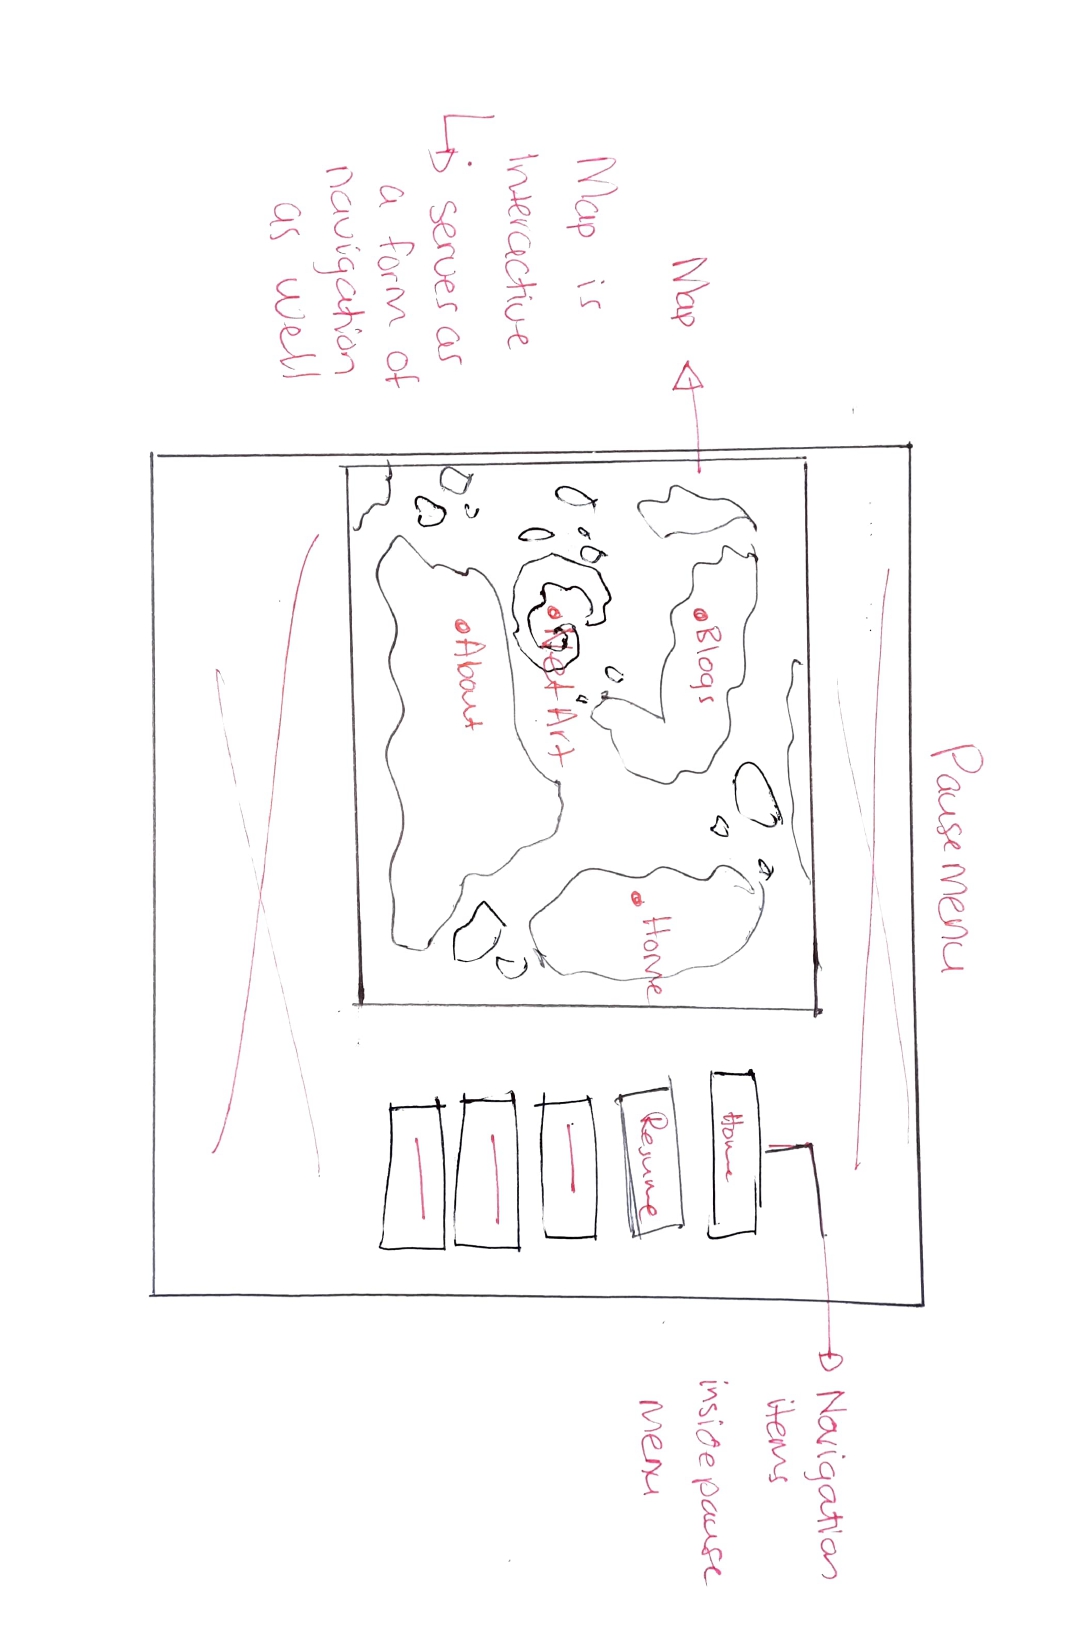 Pause Menu
Map
Map is
Interactive
serves as
a form of
navigation
as well
Blogs
Net Art
About
Home
Home
Resume
Navigation
items
inside pause
menu